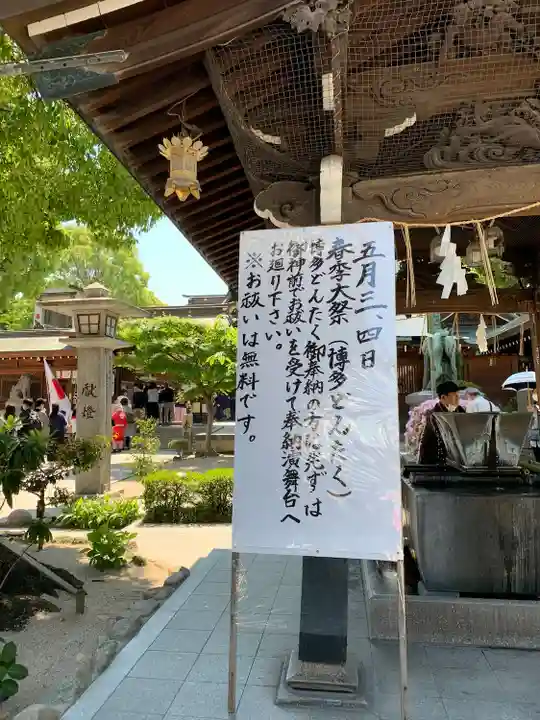 五月三、四日
春季大祭（博多どんたく）
博多どんたく御奉納の方は先ずは
御神前でお祓いを受けて奉納演舞台へ
お廻り下さい。
※お祓いは無料です。
献燈